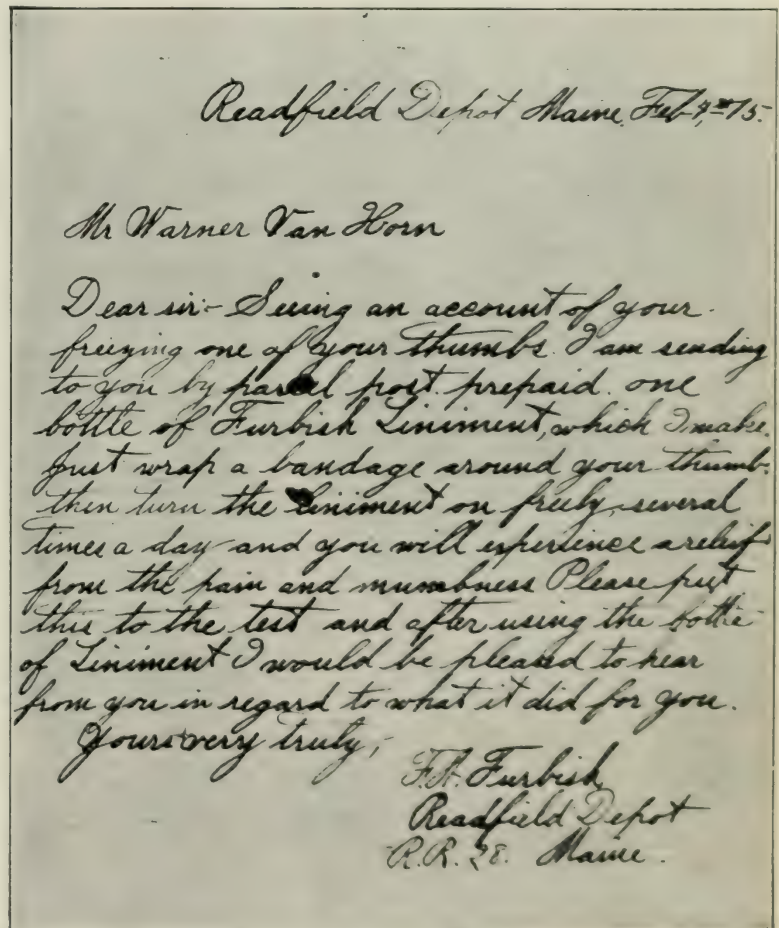 Readfield Depot Maine, Feb 4, 15.
Mr Warner Van Horn
Dear sir:- Seeing an account of your
freezing one of your thumbs. I am sending
to you by parcel post prepaid. one
bottle of Furbish Liniment, which I make.
Just wrap a bandage around your thumb.
then turn the Liniment on freely, several
times a day and you will experience a relief
from the pain and mumbness Please put
this to the test and after using the bottle
of Liniment I would be pleased to hear
from you in regard to what it did for you.
Yours very truly,
Furbish
Readfield Depot
R.R. 28. Maine.